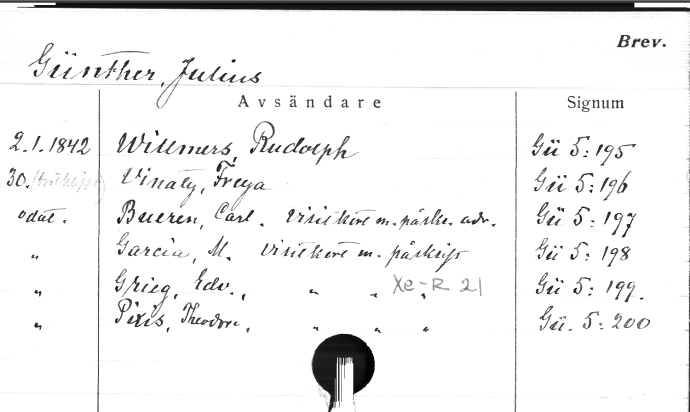 Brev.
Günther, Julius
Avsändare Signum
2.1.1842 Willmers, Rudolph Gü 5:195
30. (bortklippt) Vinaty, Freya Gü 5:196
odat. Bueren, Carl. Visitkort m. påskr. adr. Gü 5:197
" Garcia, M. Visitkort m. påskrift Gü 5:198
" Grieg, Edv., " " " Xe-R 21 Gü 5:199.
" Pixis, Theodor, " " " Gü. 5:200